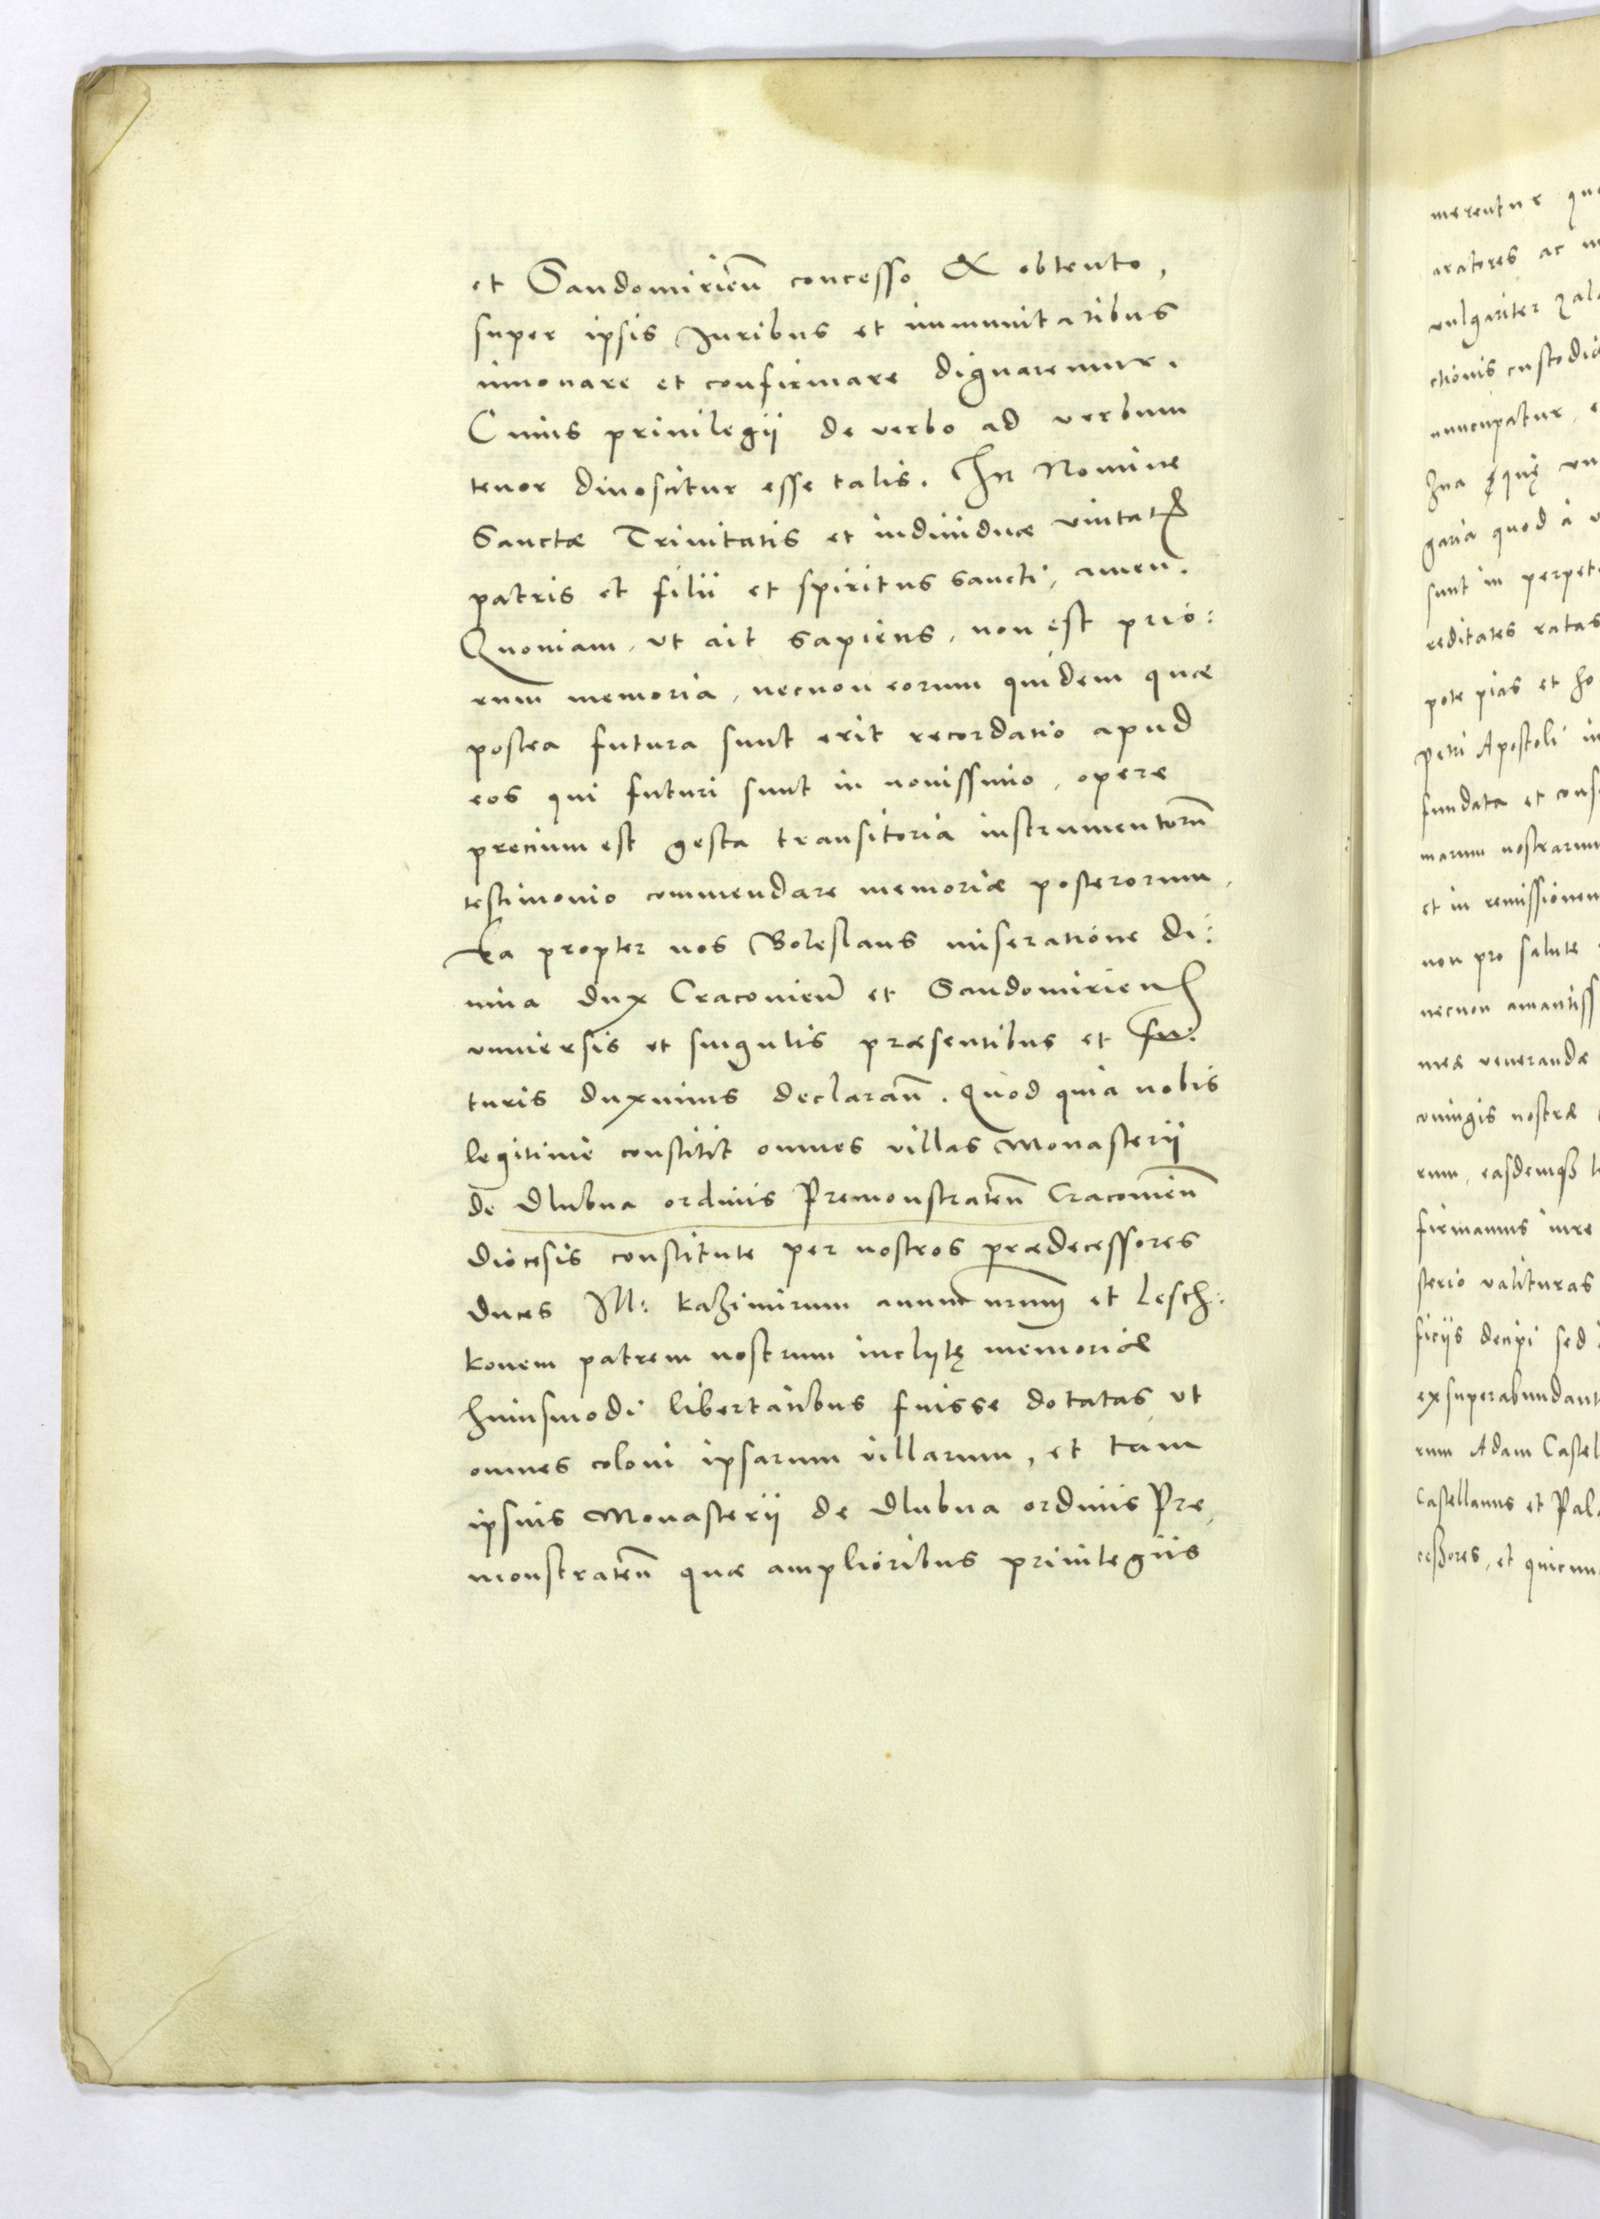 et Sandomirien̄ concesso & obtento,
super ipsis Juribus et immunitatibus
innouare et confirmare dignaremur.
Cuius priuilegii de verbo ad verbum
tenor dinoscitur esse talis. In Nomine
Sanctæ Trinitatis et indiuiduæ vnitatis
patris et filii et spiritus sancti, amen.
Quoniam, ut ait sapiens, non est prio:
rum memoria, necnon eorum quidem quæ
postea futura sunt erit recordatio apud
eos qui futuri sunt in nouissimo, opere
precium est gesta transitoria instrumentorū
testimonio commendare memoriæ posterorum,
Ea propter nos Boleslaus miseratione di:
uina dux Cracouien̄ et Sandomirien̄
vniuersis et singulis præsentibus et fu:
turis duximus declaran̄. Quod quia nobis
legitime constitit omnes villas Monasterii
de Dlubna ordinis Premonstraten̄ Cracouien̄
diocesis constitute per nostros prædecessores
duces M: Kazimirum auunc nrum et Lesch:
konem patrem nostrum inclytę memoriæ
huiusmodi libertatibus fuisse dotatas ut
omnes coloni ipsarum villarum, et tam
ipsius Monasterii de Dlubna ordinis Pre,
monstraten̄ quæ amplioribus priuilegiis
merentur
aratores ac
vulgariter
ctionis custodia
nuncupatur,
quę
garia quod à
sunt in
reditates ratas
pote pias et
petri Apostoli
fundata et
marum nostrarum
et in
non pro salute
necnon
meæ venerandæ
coniugis nostræ
rum, easdemqȝ
firmamus iure
sterio valituras
ficiis decipi sed
rum Adam
Castellanus et
cessores, et